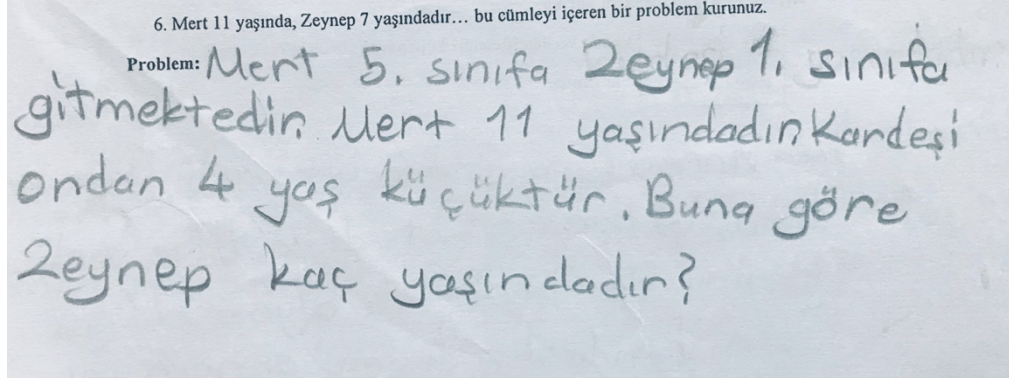 6. Mert 11 yaşında, Zeynep 7 yaşındadır... bu cümleyi içeren bir problem kurunuz.
Problem: Mert 5. sınıfa Zeynep 1. sınıfa
gitmektedir. Mert 11 yaşındadır. Kardeşi
ondan 4 yaş küçüktür. Buna göre
Zeynep kaç yaşındadır?